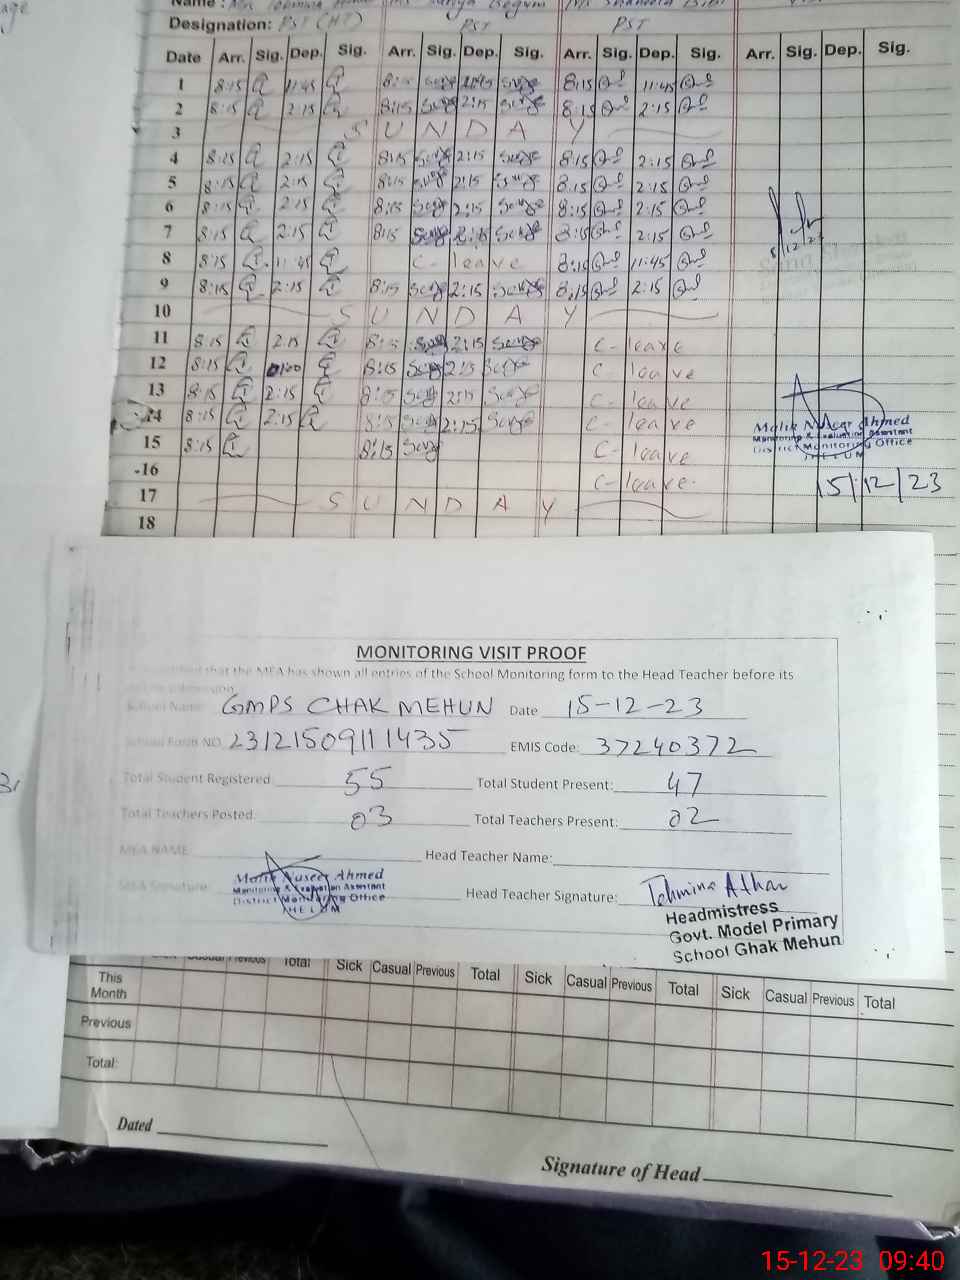 Name :
Designation: PST (HT) PST PST
Date Arr. Sig. Dep. Sig. Arr. Sig. Dep. Sig. Arr. Sig. Dep. Sig. Arr. Sig. Dep. Sig.
1 8:15 11:45 8:15 8:15 11:45
2 8:15 2:15 8:15 2:15 8:15 2:15
3 S U N D A Y
4 8:15 2:15 8:15 2:15 8:15 2:15
5 8:15 2:15 8:15 2:15 8:15 2:15
6 8:15 2:15 8:15 2:15 8:15 2:15
7 8:15 2:15 8:15 2:15 8:15 2:15
8 8:15 11:45 C- leave 8:15 11:45
9 8:15 2:15 8:15 2:15 8:15 2:15
10 S U N D A Y
11 8:15 2:15 8:15 2:15 C- leave
12 8:15 8:15 2:15 C- leave
13 8:15 2:15 8:15 2:15 C- leave
14 8:15 2:15 8:15 2:15 C- leave
15 8:15 8:15 C- leave
16 C- leave.
17 S U N D A Y
18
Malik Naseer Ahmed
Monitoring & Evaluation Assistant
District Monitoring Office
JHELUM
15/12/23
MONITORING VISIT PROOF
that the MEA has shown all entries of the School Monitoring form to the Head Teacher before its
submission
School Name: GMPS CHAK MEHUN Date 15-12-23
School Form NO. 23121509111435 EMIS Code: 37240372
Total Student Registered: 55 Total Student Present: 47
Total Teachers Posted: 03 Total Teachers Present: 02
MEA NAME Head Teacher Name:
MEA Signature: Head Teacher Signature: Tehmina Athar
Malik Naseer Ahmed
Monitoring & Evaluation Assistant
District Monitoring Office
JHELUM
Headmistress
Govt. Model Primary
School Ghak Mehun
Casual Previous Total Sick Casual Previous Total Sick Casual Previous Total Sick Casual Previous Total
This Month
Previous
Total:
Dated
Signature of Head
15-12-23 09:40